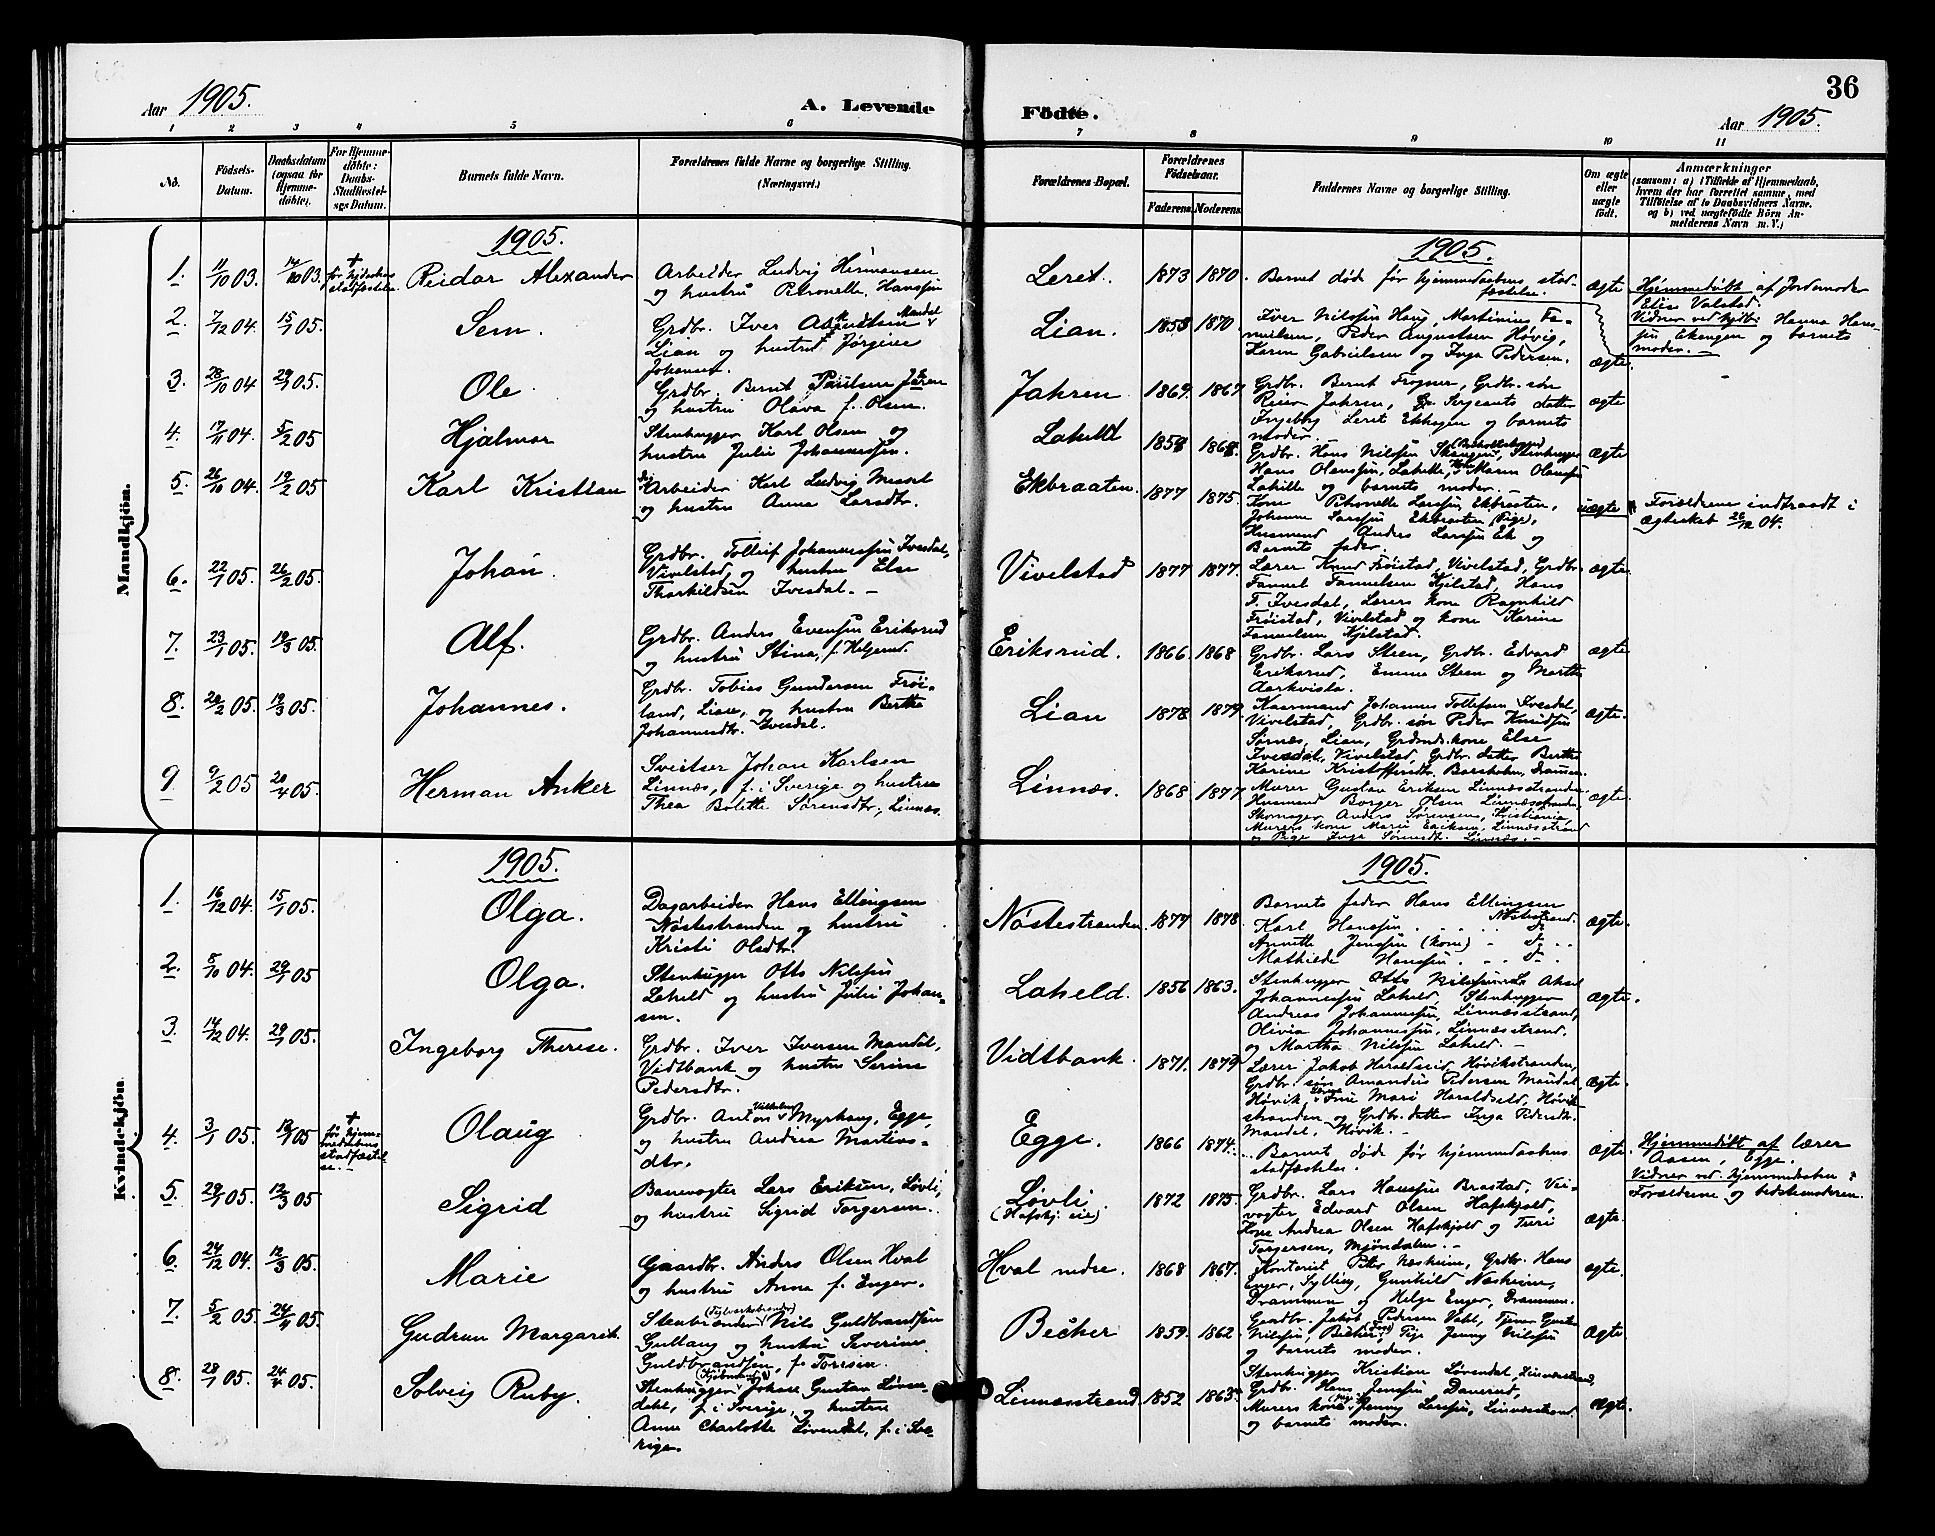 36
Aar 1905.
A. Levende Födte.
Aar 1905.
1 2 3 4 5 6 7 8 9 10 11
No.
Födsels-Datum.
Daabsdatum (ogsaa for Hjemme-döbte).
For Hjemme-döbte: Daabs-Stadfæstelsens Datum.
Barnets fulde Navn.
Forældrenes fulde Navne og borgerlige Stilling. (Næringsvei.)
Forældrenes Bopæl.
Forældrenes Födselsaar.
Faderens. Moderens.
Faddernes Navne og borgerlige Stilling.
Om ægte eller uægte födt.
Anmærkninger
(saasom: a) i Tilfælde af Hjemmedaab, hvem der har forrettet samme, med Tilföielse af to Daabsvidners Navne, og b) ved uægtefödte Börn Anmelderens Navn m. V.)
Mandkjön.
1905.
1905.
1. 11/10 03. 14/10 03. + før hjdaabens stadfæstelse Reidar Alexander Arbeider Ludvig Hermansen og hustru Petronelle Hanssen Leret. 1873 1870. Barnet døde før hjemmedaabens stadfæstelse. ægte Hjemmedøbt af Jordemoder Elise Valstad. Vidner ved hjdb: Hanna Hanssen Ekengen og barnets moder.
2. 7/12 04. 15/1 05. Sem. Grdbr. Iver Mandal Lian og hustru Jørgine Johansen. Lian. 1858 1870 Iver Nilssen Haug, Peder Augustsen Høvig, Karen Gabrielsen og Inga Pedersen. ægte.
3. 28/10 04 29/1 05. Ole. Grdbr. Bernt Paulsen Jahren og hustru Olava f. Olsen. Jahren. 1869. 1867 Grdbr. Bernt Frogner, Grdbr. søn Jahren, Serjeants datter Ingeborg Leret Ekhagen og barnets moder. ægte
4. 17/11 04. 5/2 05 Hjalmar Stenhugger Karl Olsen og hustru Julie Johannessen. Laheld 1858 Grdbr. Hans Nilssen Stenhugger Hans Olanssen, Lahelle, Maren Olanssen Lahille og barnets moder. ægte
5. 26/10 04. 12/2 05 Karl Kristian Arbeider Karl Ludvig og hustru Anna Larsdtr. Ekbraaten. 1877 1875. Kone Petronelle Larssen Ekbraaten, Johanne Larssen Ekbraaten (Pige), Husmand Anders Larssen Ek og Barnets fader. uægte Forældrene indtraadt i ægteskab 26/12 04.
6. 22/1 05. 26/2 05. Johan. Grdbr. Tolleif Johannessen Ivesdal, Vivelstad, og hustru Else Tharkildsen Ivesdal. Vivelstad 1877 1877. Lærer Knud Frøistad, Vivelstad, Grdbr. Fannuel Fannelsen Kjelstad, Hans T. Ivesdal, Lærers kone Ragnhild Frøistad, Vivelstad og kone Karine Fannelsen Kjelstad. ægte
7. 23/1 05. 19/3 05. Alf. Grdbr. Anders Evensen Eriksrud og hustru Stina, f. Helgerud. Eriksrud. 1866 1868 Grdbr. Lars Steen, Grdbr. Edvard Eriksrud, Emma Steen og Marthe Aarkvisla. ægte
8. 20/2 05. 19/3 05. Johannes. Grdbr. Tobias Gundersen Frøiland, Lian, og hustru Berthe Johannesdtr. Ivesdal. Lian 1878 1879. Kaarmand Johannes Tollefsen Ivesdal, Vivelstad, Grdbr. søn Peder Knudsen Sørnæs, Lian, Grdmds. kone Else Ivesdal, Vivelstad, Grdbr. datter Berthe Karine Kristoffersdtr. Borsholm, Drammen. ægte.
9. 9/2 05 20/4 05. Herman Anker Sveitser Johan Karlsen Linnæs, f. i Sverige og hustru Thea Bolette Sørensdtr., Linnæs. Linnæs. 1868 1877 Murer Gustav Eriksen Linnæsstranden, Husmand Borger Olsen Linnæsstranden, Skomager Anders Sørensen, Kristiania, Murers kone Marie Eriksen, Linnæsstrand og Pige Inga Sørensdt. Linnæs. ægte.
Kvindekjön.
1905.
1905.
1. 16/12 04. 15/1 05. Olga. Dagarbeider Hans Ellingsen Nøstestranden og hustru Kristi Olsdtr. Nøstestranden 1877 1878. Barnets fader Hans Ellingsen Nøstestrand. Karl Hanssen do Annette Jenssen (kone) do Mathilde Hanssen. do ægte.
2. 8/10 04. 29/1 05 Olga. Stenhugger Otto Nilssen Laheld og hustru Julie Johansen. Laheld. 1856 1863. Stenhugger Otto Nilssen Aksel Johannessen Laheld, Stenhugger Andreas Johannessen, Linnæsstrand, Olivia Johannessen, Linnæsstrand. og Martha Nilssen Laheld. ægte.
3. 14/12 04. 29/1 05. Ingeborg Therese. Grdbr. Iver Iversen Mandal, Vidtbank og hustru Serine Pedersdtr. Vidtbank. 1871. 1879 Lærer Jakob Haraldseid, Høvikstranden, Grdbr. søn Amandus Pedersen Mandal, Høvik, Frue Mari Haraldseid, Høvikstranden og Grdbr. datter Inga Pedersdt. Mandal, Høvik. ægte.
4. 3/1 05. 05 + før hjemmedaabens stadfæstelse. Olaug Grdbr. Anton Vilhelm Myrhaug, Egge, og hustru Andrea Martinsdtr. Egge. 1866 1874. Barnet døde før hjemmedaabens stadfæstelse. ægte. Hjemmedøbt af lærer Aasen Egge. Vidner ved hjemmedaaben: Forældrene og bedstemoderen.
5. 29/1 05. 12/3 05 Sigrid Banevogter Lars Eriksen, Løvli, og hustru Sigrid Torgersen. Løvli (Hafskj. eie) 1872 1875. Grdbr. Lars Hanssen Brastad, Veivogter Edvard Olsen Hafskjold, Kone Andrea Olsen Hafskjold og Turi Torgersen, Mjøndalen. ægte.
6 24/12 04. 12/3 05. Marie Gaardbr. Anders Olsen Hval og hustru Anna f. Enger. Hval ndre. 1868 1867. Kontorist Peter Næsheim, Grdbr. Hans Enger, Sylling, Gunhild Næsheim, Drammen og Helge Enger, Drammen. ægte.
7. 5/2 05. 24/4 05. Gudrun Margareth. Stenbrænder (Teglværksbrænder) Nils Guldbrandsen Gullaug og hustru Severine Guldbrandsen, f. Toresen. Becher 1859. 1862 Gaardbr. Jakob Pedersen Vahl, Tjener Gusta Nilssen, Becher, Pige Jenny Nilssen og barnets moder. ægte
8. 28/1 05. 24/4 05. Solveig Ruby. Stenhugger Johan Gustav Løvendahl, f. i Sverige, og hustru Anna Charlotte Løvendal, f. i Sverige. Linnæsstrand 1852 1863 Stenhugger Kristian Løvendal, Linnæsstrand, Grdbr. Hans Jenssen Dauerud, Murers kone Jenny Larssen, Linnæsstrand og barnets moder. ægte.